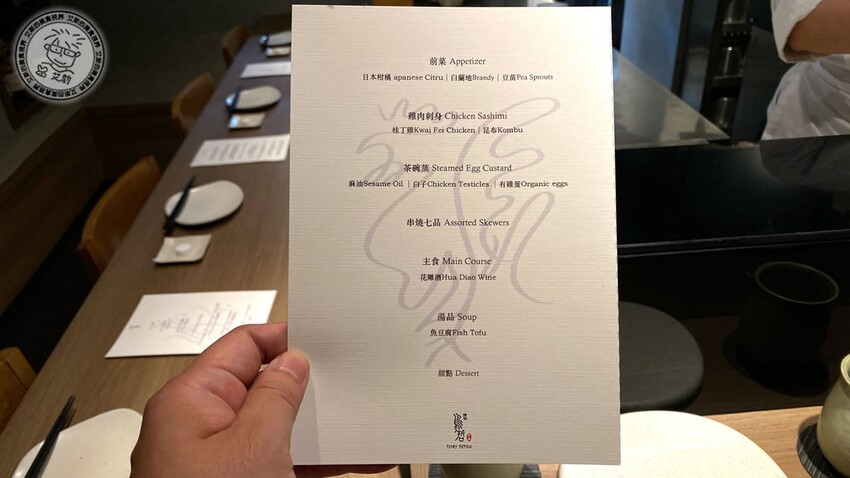 艾斯的美食視界
艾斯
前菜 Appetizer
日本柑橘 apanese Citru｜白蘭地Brandy｜豆苗Pea Sprouts
雞肉刺身 Chicken Sashimi
桂丁雞Kwai Fei Chicken｜昆布Kombu
茶碗蒸 Steamed Egg Custard
麻油Sesame Oil ｜白子Chicken Testicles｜有雞蛋Organic eggs
串燒七品 Assorted Skewers
主食 Main Course
花雕酒Hua Diao Wine
湯品 Soup
魚豆腐Fish Tofu
甜點 Dessert
鳥哲
TORI TETSU